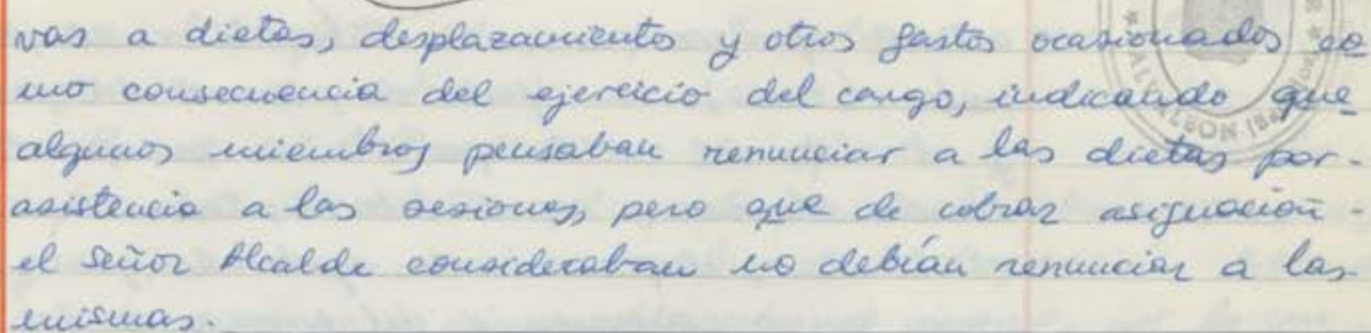 vas a dietas, desplazamientos y otros gastos ocasionados co
mo consecuencia del ejercicio del cargo, indicando que
algunos miembros pensaban renunciar a las dietas por-
asistencia a las sesiones, pero que de cobrar asignación-
el señor Alcalde consideraban no debían renunciar a las
mismas.